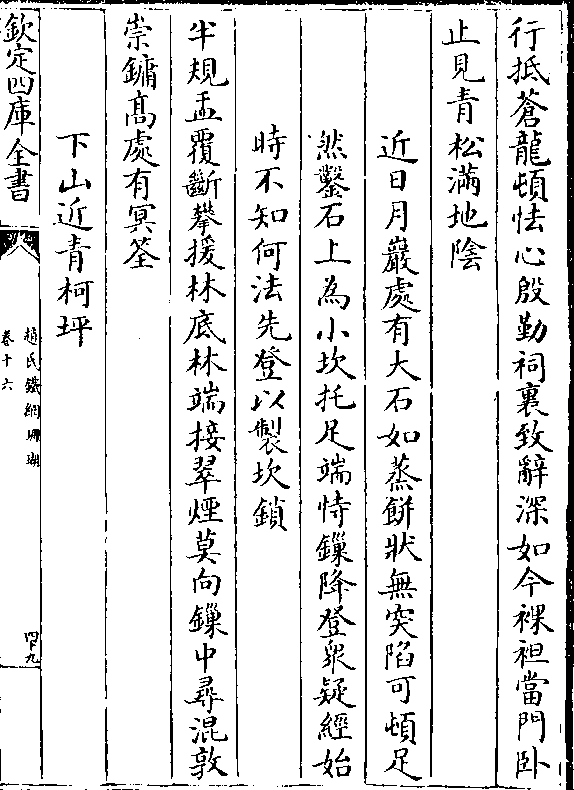 行抵蒼龍頓怯心殷勤祠裏致辭深如今裸袒當門卧
止見青松滿地陰
近日月巖處有大石如蒸餅狀無突陷可頓足
然鑿石上為小坎托足端恃鏁降登衆疑經始
時不知何法先登以製坎鎖
半規盂覆斷攀援林底林端接翠煙莫向鏁中尋混敦
崇鏞高處有冥筌
下山近青柯坪
欽定四庫全書
趙氏鐵網珊瑚
卷十六
四十九